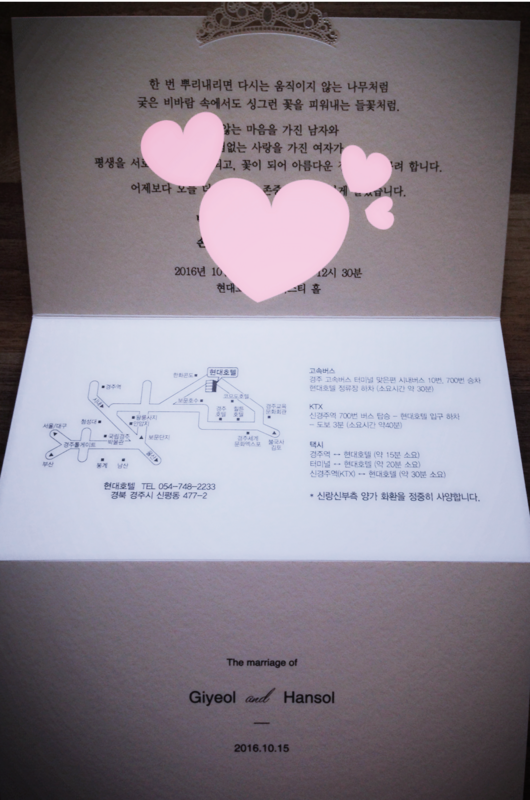 한 번 뿌리내리면 다시는 움직이지 않는 나무처럼
궂은 비바람 속에서도 싱그런 꽃을 피워내는 들꽃처럼,
않는 마음을 가진 남자와
없는 사랑을 가진 여자가
평생을 꽃이 되어 아름다운 합니다.
어제보다
2016년 12시 30분
홀
현대호텔
경주역
서울/대구
경주톨게이트
부산
첨성대
국립경주
박물관
보문단지
남산
불국사
현대호텔 TEL 054-748-2233
경북 경주시 신평동 477-2
고속버스
경주 고속버스 터미널 맞은편 시내버스 10번, 700번 승차
현대호텔 정류장 하차 (소요시간 약 30분)
KTX
신경주역 700번 버스 탑승 - 현대호텔 입구 하차
- 도보 3분 (소요시간 약40분)
택시
경주역 ↔ 현대호텔 (약 15분 소요)
터미널 ↔ 현대호텔 (약 20분 소요)
신경주역(KTX) ↔ 현대호텔 (약 30분 소요)
* 신랑신부측 양가 화환을 정중히 사양합니다.
The marriage of
Giyeol and Hansol
2016.10.15